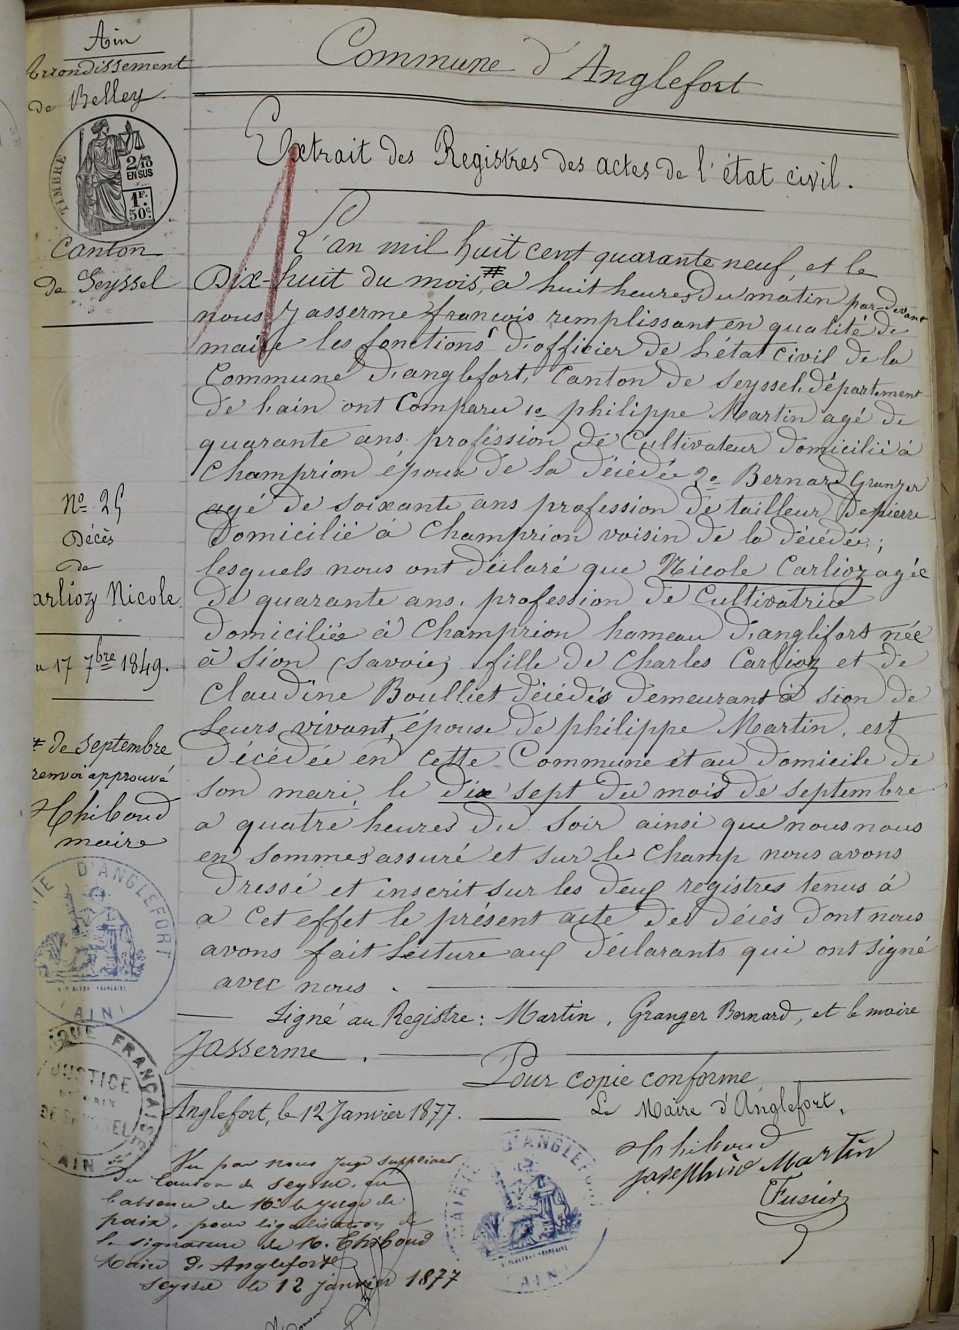 Ain
Arrondissement
de Belley.
TIMBRE
2/10
EN SUS
1F.
50c
Canton
de Seyssel
Commune d'Anglefort
Extrait des Registres des actes de l'état civil.
L'an mil huit cent quarante neuf, et le
Dix-huit du mois, # à huit heures du matin par-devant
nous Jasserme francois remplissant en qualité de
maire les fonctions d'officier de l'état civil de la
Commune d'anglefort, Canton de Seyssel, département
de l'ain ont Comparu 1o philippe Martin agé de
quarante ans profession de Cultivateur domicilié à
Champrion époux de la décédée 2o Bernard Granger
agé de soixante ans profession de tailleur de pierre
Domicilié à Champrion voisin de la décédée;
lesquels nous ont déclaré que Nicole Carlioz agée
de quarante ans, profession de Cultivatrice
domiciliée à Champrion hameau d'anglefort née
à Sion (Savoie) fille de Charles Carlioz et de
Claudine Boulliet décédés demeurant à Sion de
leurs vivant, épouse de philippe Martin, est
décédée en cette Commune et au domicile de
son mari, le dix sept du mois de septembre
a quatre heures du soir ainsi que nous nous
en sommes assuré et sur le champ nous avons
dressé et inscrit sur les deux registres tenus à
a cet effet le présent acte de décès dont nous
avons fait lecture aux déclarants qui ont signé
avec nous.
Signé au Registre: Martin, Granger Bernard, et le maire
Jasserme.
Pour copie conforme
Anglefort, le 12 Janvier 1877.
Le Maire d'Anglefort,
Thiboud
Josephine Martin
Fusier
No 25
Décès
de
arlioz Nicole
u 17 7bre 1849.
# de septembre
renvoi approuvé
Thiboud
maire
IE D'ANGLEFORT
(AIN)
QUE FRANÇAISE
JUSTICE
DE PAIX
DE SEYSSEL
AIN
Vu par nous Juge suppléant
du Canton de Seyssel, en
l'absence de Mr le Juge de
paix, pour légalisation de
la signature de M. Thiboud
Maire d'Anglefort
Seyssel le 12 janvier 1877
MAIRIE D'ANGLEFORT
(AIN)